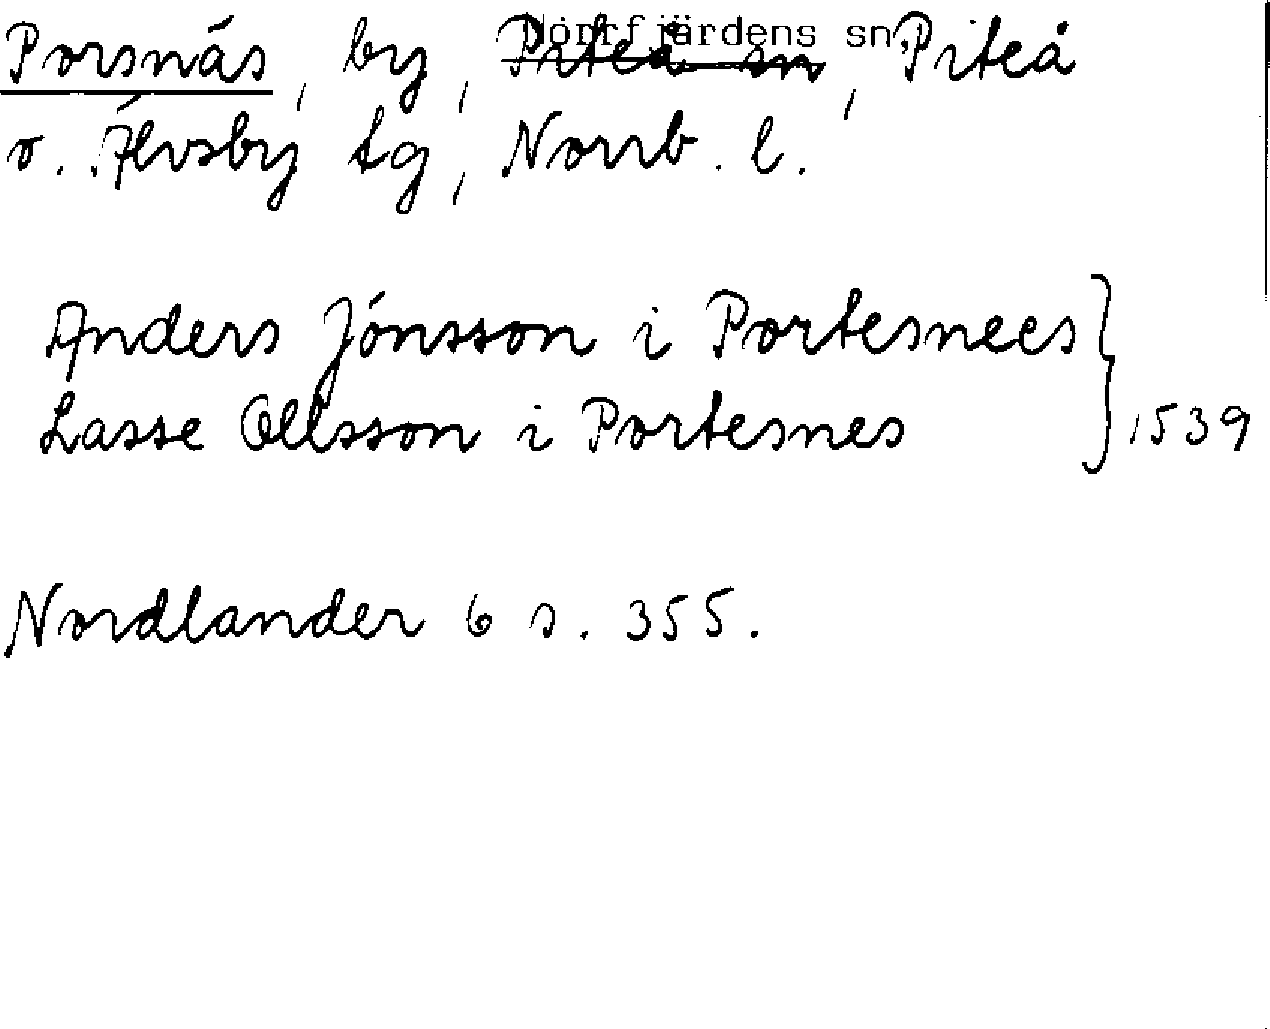 Porsnäs, by, Norrfjärdens sn, Piteå
o. Älvsby tg, Norrb. l.
Anders Jönsson i Portesnees
Lasse Ollsson i Portesnes } 1539
Nordlander 6 s. 355.